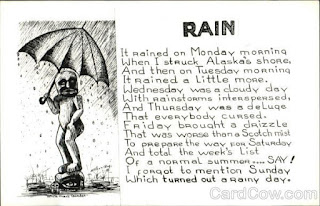 RAIN
It rained on Monday morning
When I struck Alaska's shore,
And then on Tuesday morning
It rained a little more.
Wednesday was a cloudy day
With rainstorms interspersed,
And Thursday was a deluge
That everybody cursed.
Friday brought a drizzle
That was worse than a Scotch mist
To prepare the way for Saturday
And total the week's list
Of a normal summer.... SAY!
I forgot to mention Sunday
Which turned out a rainy day.
CardCow.com